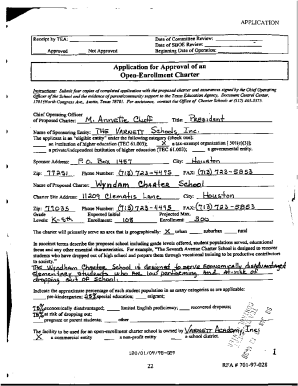 APPLICATION
Receipt by TEA:
Date of Committee Review:
Date of SBOE Review:
Approved Not Approved Beginning Date of Operation:
Application for Approval of an
Open-Enrollment Charter
Instructions: Submit four copies of completed application with the proposed charter and assurances signed by the Chief Operating
Officer of the School and the evidence of parent/community support to the Texas Education Agency, Document Control Center,
1701 North Congress Ave., Austin, Texas 78701. For assistance, contact the Office of Charter Schools at (512) 463-
Chief Operating Officer
of Proposed Charter: M. Annette Cluff Title: President
Name of Sponsoring Entity: The Varnett Schools, Inc.
The applicant is an "eligible entity" under the following category (check one):
an institution of higher education (TEC 61.003); X a tax-exempt organization (501(c)(3));
a private/independent institution of higher education (TEC 61.003); a governmental entity.
Sponsor Address: P.O. Box 1457 City: Houston
Zip: 77251 Phone Number: (713) 723-4495 FAX: (713) 723-5853
Name of Proposed Charter: Wyndam Charter School
Charter Site Address: 11209 Clematis Lane City: Houston
Zip: 77035 Phone Number: (713) 723-4495 FAX: (713) 723-5853
Grade Expected Initial Projected Max.
Levels: K-5th Enrollment: 108 Enrollment: 300
The charter will primarily serve an area that is geographically: X urban suburban rural
In succinct terms describe the proposed school including grade levels offered, student population served, educational
focus and any other essential characteristics. For example, "The Seventh Avenue Charter School is designed to recover
students who have dropped out of high school and prepare them through vocational training to be productive contributors
to society."
The Wyndham Charter School is designed to serve economically disadvantaged
elementary students who are low performing and at-risk of
dropping out of school.
Indicate the approximate percentage of each student population in as many categories as are applicable:
pre-kindergarten; special education; migrant;
economically disadvantaged; limited English proficiency; recovered dropouts;
at risk of dropping out;
pregnant or parent students; other
The facility to be used for an open-enrollment charter school is owned by Varnett Academy, Inc.
X a commercial entity a non-profit entity a school district.
22
RFA # 701-97-028